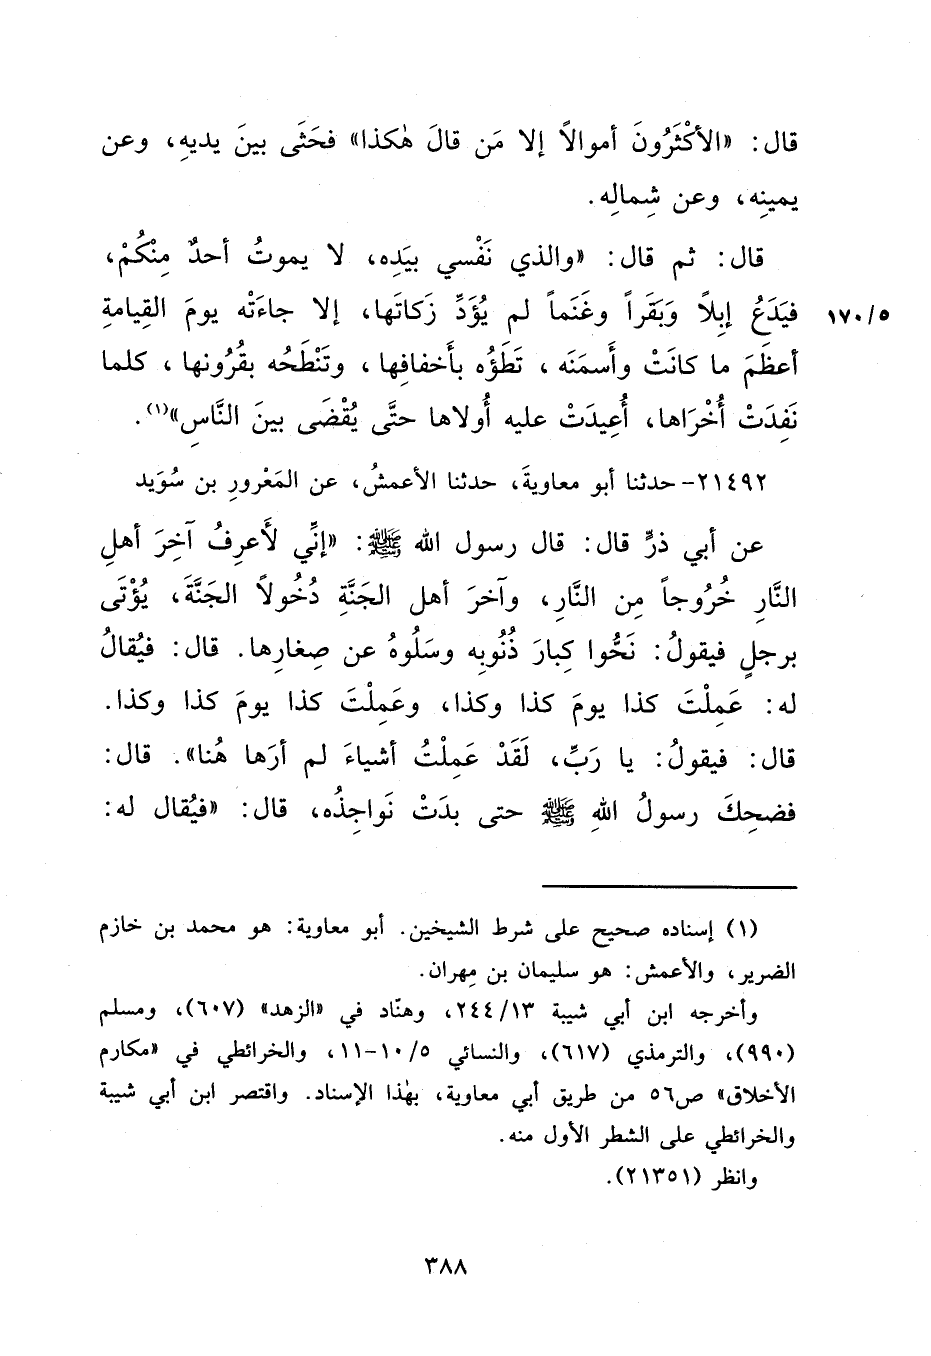 قال: «الأكْثَرُونَ أموالاً إلا مَن قالَ هٰكذا» فحَثَى بينَ يديهِ، وعن
يمينِه، وعن شِمالِه.
قال: ثم قال: «والذي نَفْسي بيَدِه، لا يموتُ أحدٌ مِنْكُمْ،
فيَدَعُ إبِلاً وَبَقَراً وغَنَماً لم يُؤَدِّ زَكاتَها، إلا جاءَتْه يومَ القِيامةِ ١٧٠/٥
أعظَمَ ما كانَتْ وأَسمَنَه، تَطَؤُه بأَخفافِها، وتَنْطَحُه بقُرُونها، كلما
نَفِدَتْ أُخْرَاها، أُعِيدَتْ عليه أُولاها حتَّى يُقْضَى بينَ النَّاسِ»(١).
٢١٤٩٢- حدثنا أبو معاويةَ، حدثنا الأعمشُ، عن المَعْرورِ بن سُوَيد
عن أبي ذرٍّ قال: قال رسول الله ﷺ: «إنِّي لَأَعرِفُ آخِرَ أهلِ
النَّارِ خُرُوجاً مِن النَّارِ، وآخرَ أهل الجَنَّةِ دُخُولاً الجَنَّةَ، يُؤْتَى
برجلٍ فيقولُ: نَحُّوا كِبارَ ذُنُوبِه وسَلُوهُ عن صِغارِها. قال: فيُقالُ
له: عَمِلْتَ كذا يومَ كذا وكذا، وعَمِلْتَ كذا يومَ كذا وكذا.
قال: فيقولُ: يا رَبِّ، لَقَدْ عَمِلْتُ أشياءَ لم أرَها هُنا». قال:
فضحِكَ رسولُ اللهِ ﷺ حتى بدَتْ نَواجِذُه، قال: «فيُقال له:
(١) إسناده صحيح على شرط الشيخين. أبو معاوية: هو محمد بن خازم
الضرير، والأعمش: هو سليمان بن مِهران.
وأخرجه ابن أبي شيبة ٢٤٤/١٣، وهنّاد في «الزهد» (٦٠٧)، ومسلم
(٩٩٠)، والترمذي (٦١٧)، والنسائي ١٠/٥-١١، والخرائطي في «مكارم
الأخلاق» ص٥٦ من طريق أبي معاوية، بهٰذا الإسناد. واقتصر ابن أبي شيبة
والخرائطي على الشطر الأول منه.
وانظر (٢١٣٥١).
٣٨٨